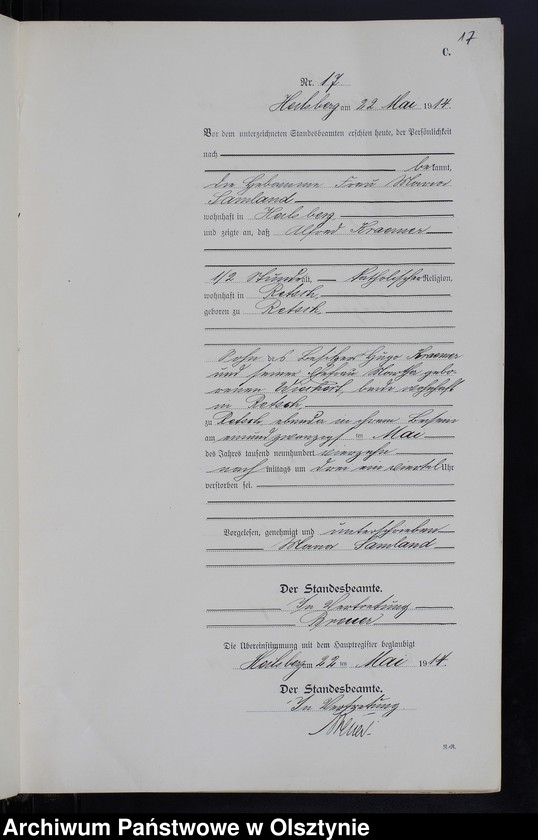 17
C.
Nr. 17
Heilsberg am 22 Mai 1914.
Vor dem unterzeichneten Standesbeamten erschien heute, der Persönlichkeit
nach
bekannt,
die Hebamme Frau Maria
Samland
wohnhaft in Heilsberg
und zeigte an, daß Alfred Kraemer
1/2 Stunde alt, katholischer Religion,
wohnhaft in Retsch,
geboren zu Retsch,
Sohn des Besitzer Hugo Kraemer
und seiner Ehefrau Martha gebo-
renen, beide wohnhaft
in Retsch
zu Retsch, ebenda in ihrem Beisein
am einundzwanzigst im Mai
des Jahres tausend neunhundert vierzehn
nach mittags um drei ein viertel Uhr
verstorben sei.
Vorgelesen, genehmigt und unterschrieben
Maria Samland
Der Standesbeamte.
In Vertretung
Die Übereinstimmung mit dem Hauptregister beglaubigt
Heilsberg am 22 ten Mai 1914.
Der Standesbeamte.
In Vertretung
Archiwum Państwowe w Olsztynie